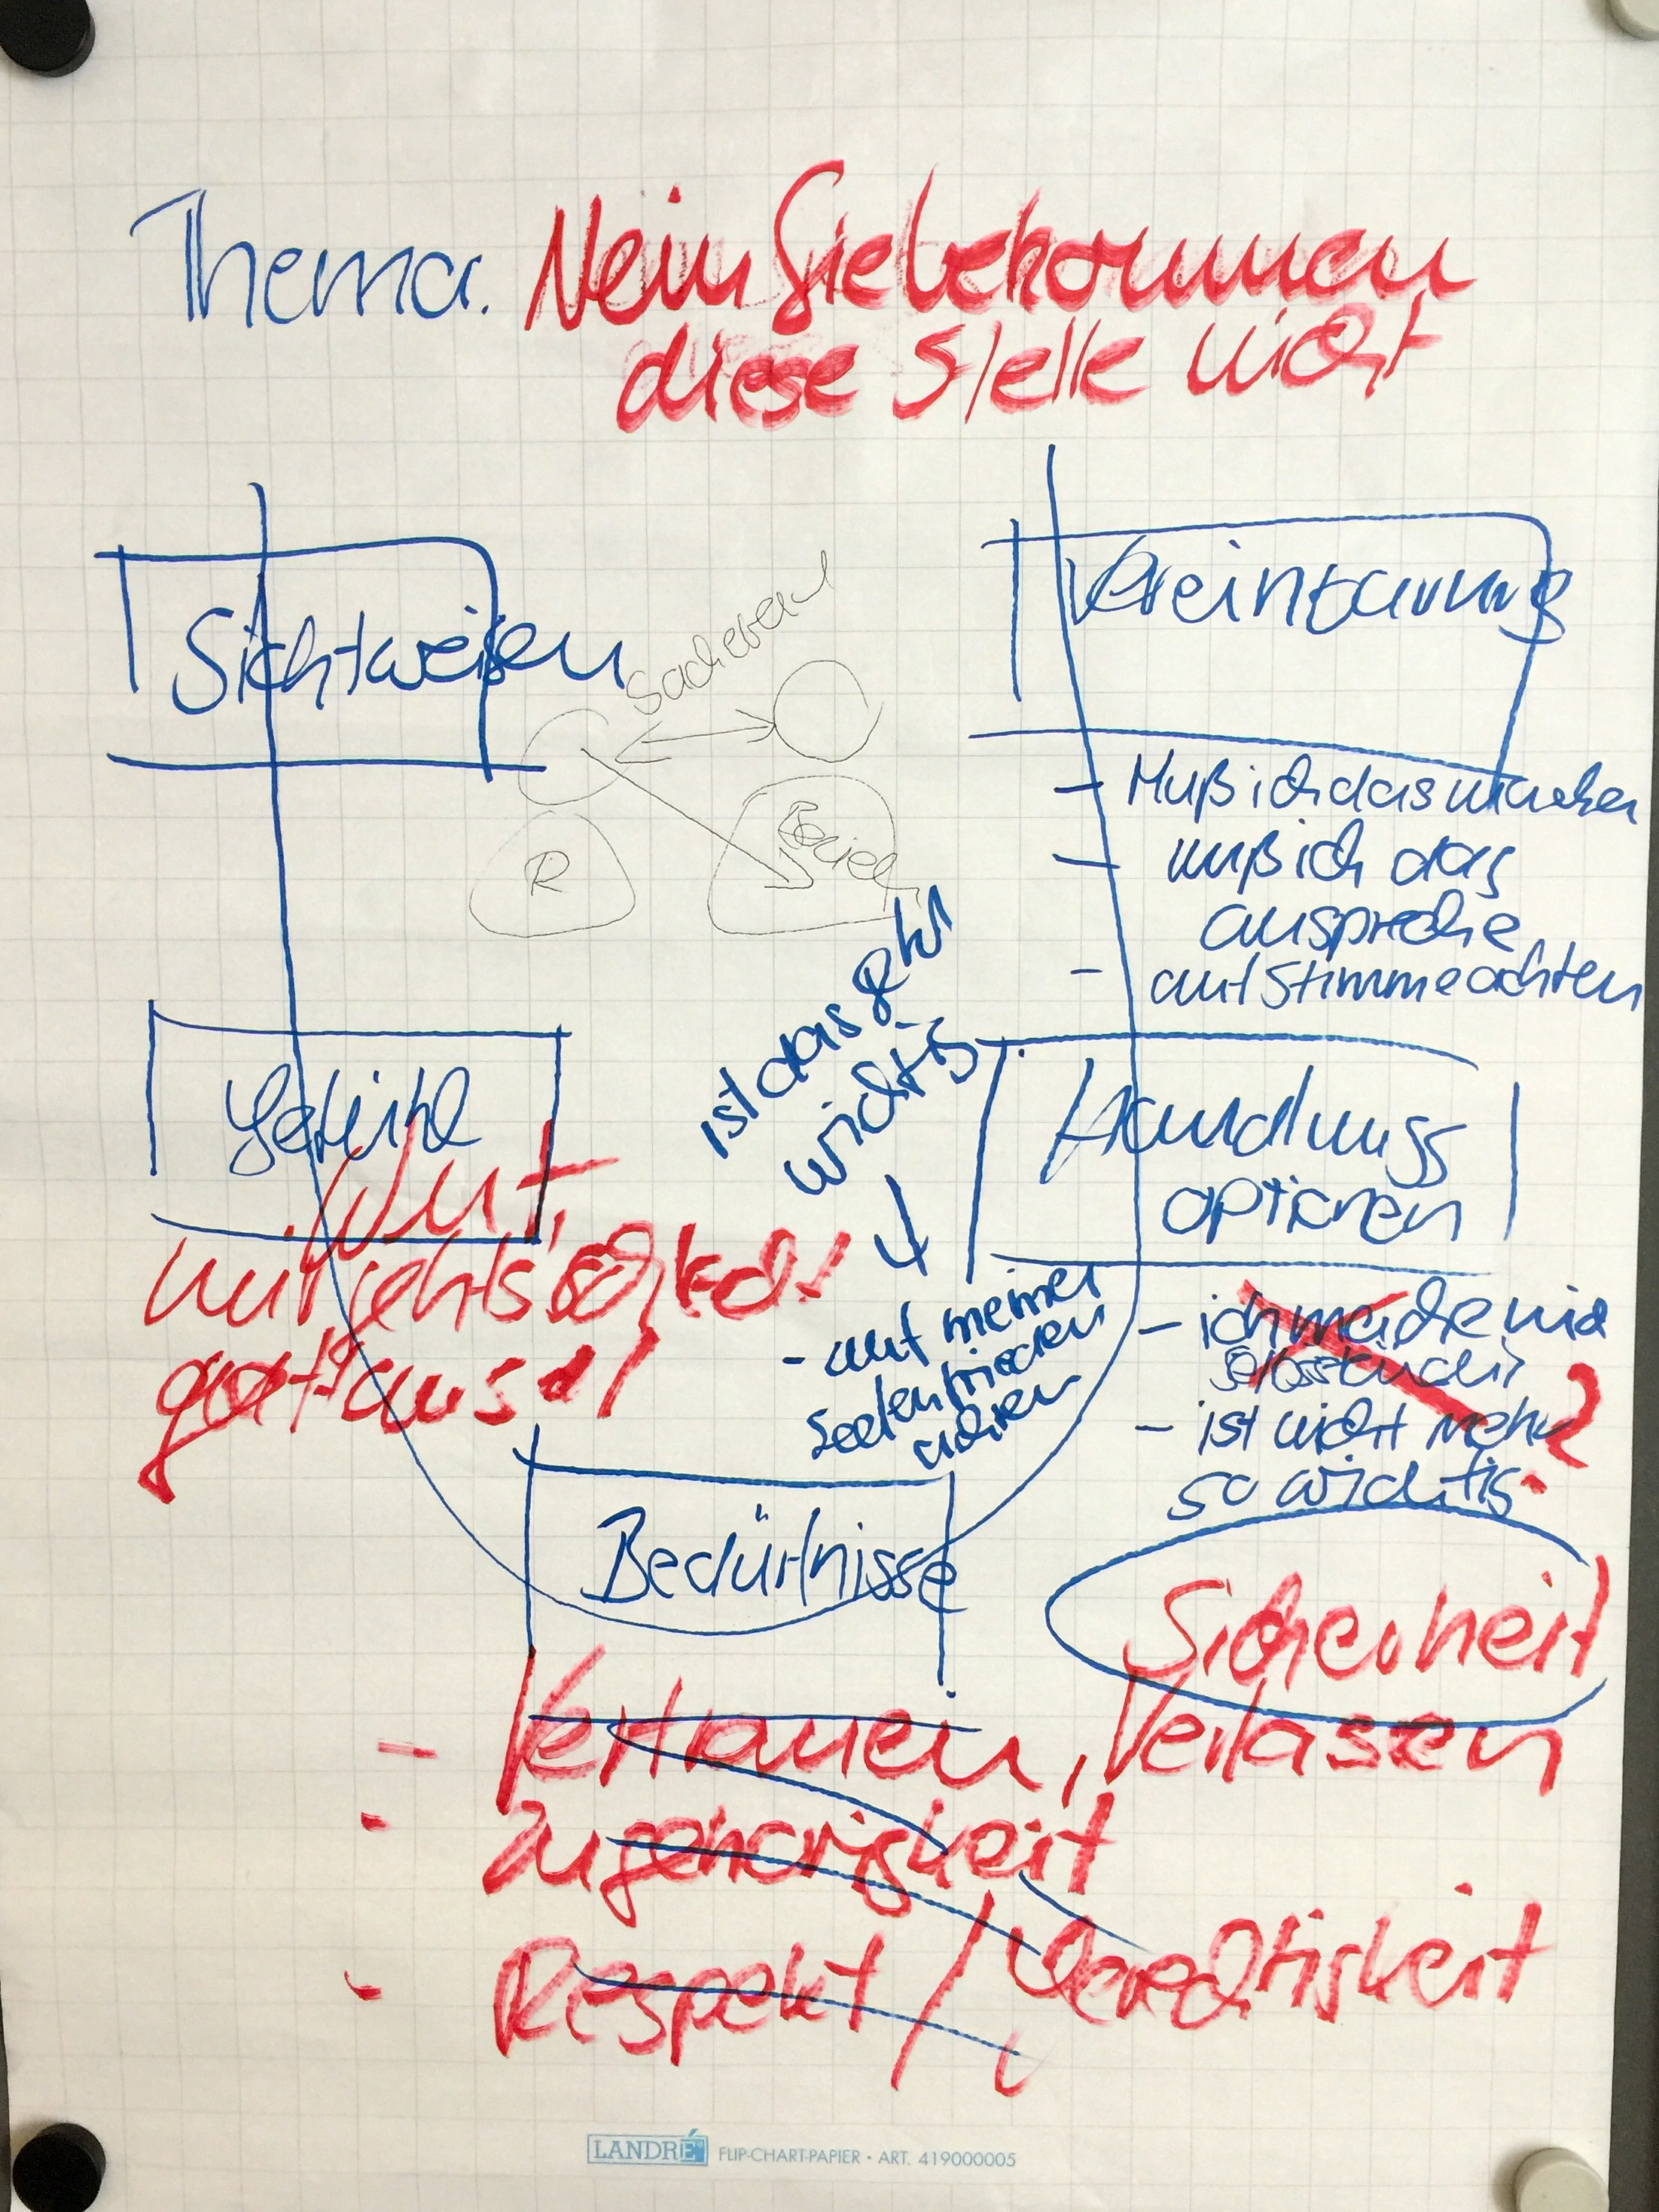 Thema: Nein Sie bekommen
diese Stelle nicht
Sichtweisen
Vereinbarung
R
- Muß ich das machen
- muß ich das
anspreche
- auf Stimme achten
Gefühl
Wut,
ist das
wichtig
- auf meinen
Seelenfrieden
achten
Handlungs
optionen
- ich mache mich
selbstständig
- ist nicht mehr
so wichtig ?
Bedürfnisse
Sicherheit
- Vertrauen, Verlassen
- Zugehörigkeit
- Respekt / Gerechtigkeit
LANDRÉ FLIP-CHART-PAPIER · ART. 419000005